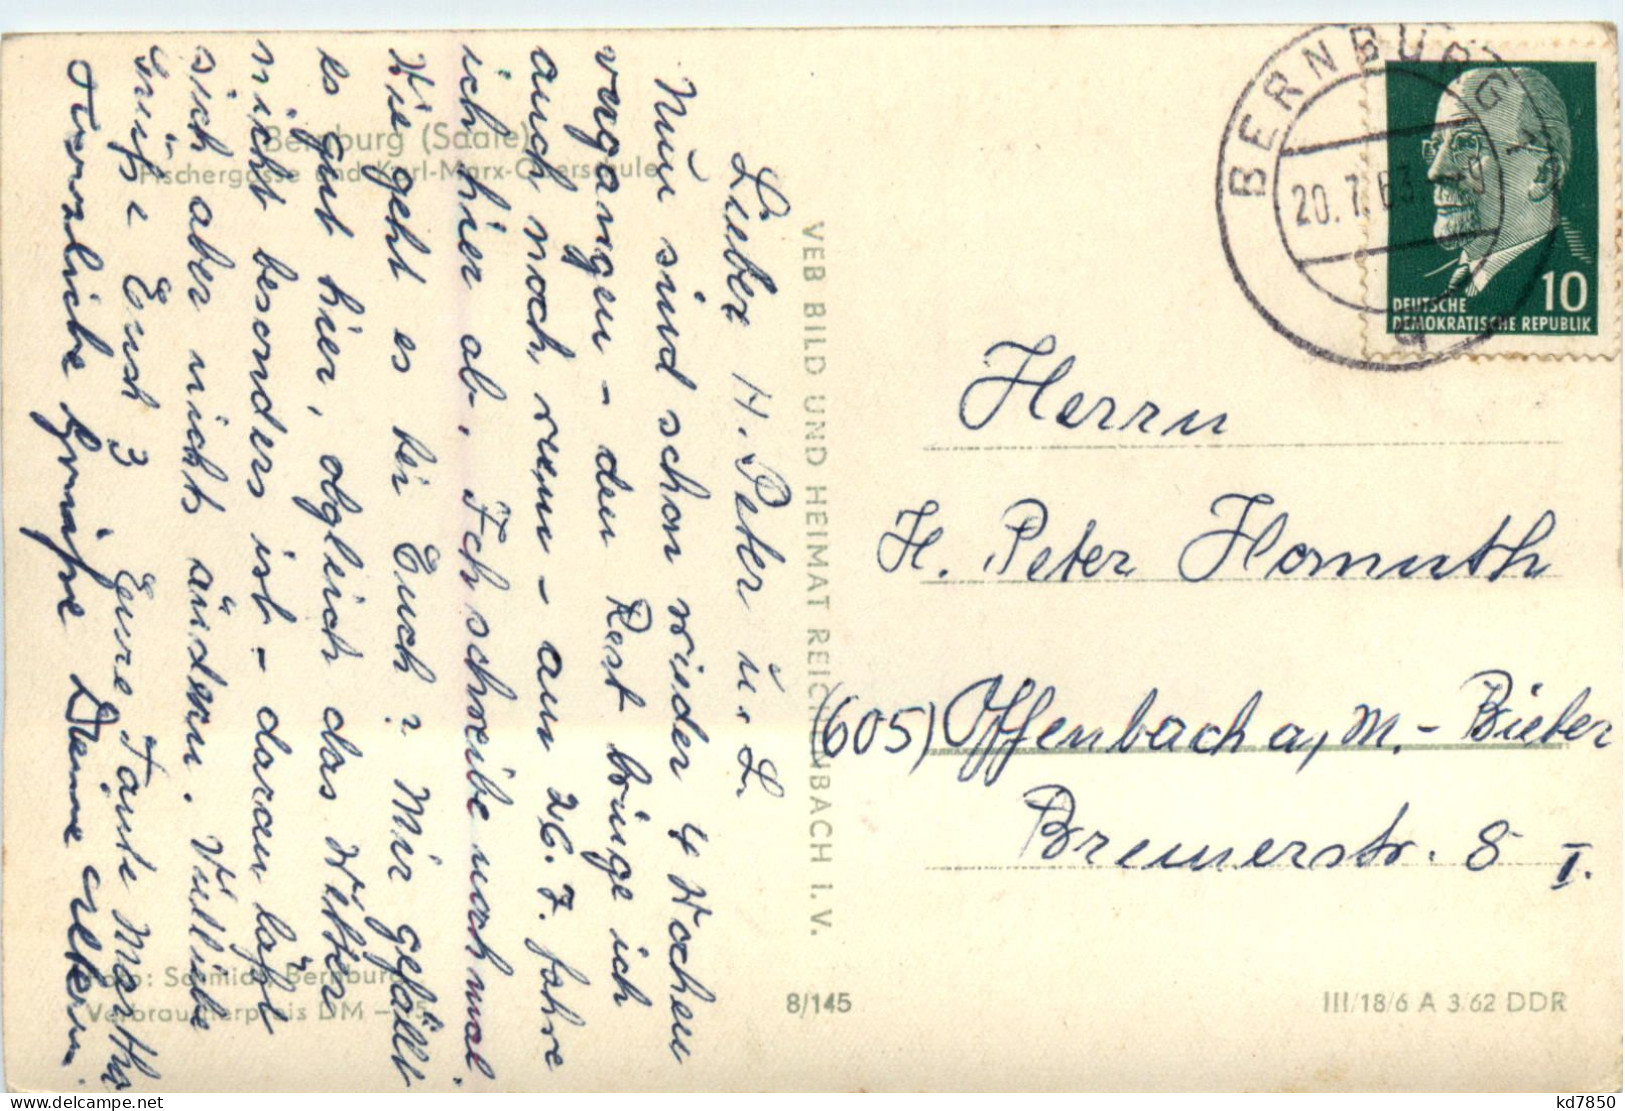 Bernburg (Saale)
Fischergasse und Karl-Marx-Oberschule
Lieber H. Peter u. L.
Nun sind schon wieder 4 Wochen
vergangen – den Rest bringe ich
auch noch rum – am 26.7. fahre
ich hier ab. Ich schreibe nochmal.
Wie geht es bei Euch? Mir gefällt
es gut hier, obgleich das Wetter
nicht besonders ist – daran läßt
sich aber nichts ändern. Viel liebe
Grüße Euch 3 Eure Tante Martha
Herzliche Grüße Deine Eltern.
Foto: Schmidt, Bernburg
Verbraucherpreis DM –
VEB BILD UND HEIMAT REICHENBACH I. V.
8/145
III/18/6 A 3/62 DDR
BERNBURG 1
20.7.63
10
DEUTSCHE
DEMOKRATISCHE REPUBLIK
Herrn
H. Peter Homuth
(605) Offenbach a, M. - Bieber
Bremerstr. 8 I.
kd7850